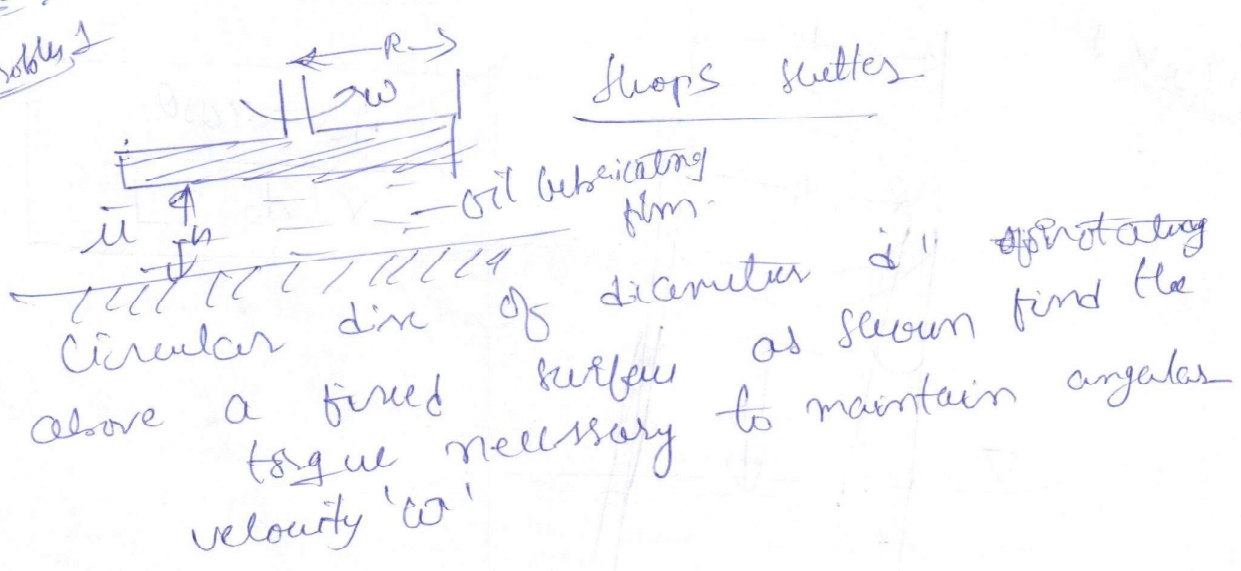 R
ω
Shops shutter
oil lubricating
film.
μ
h
Circular disc of diameter 'd' rotating
above a fixed surface as shown find the
torque necessary to maintain angular
velocity 'ω'